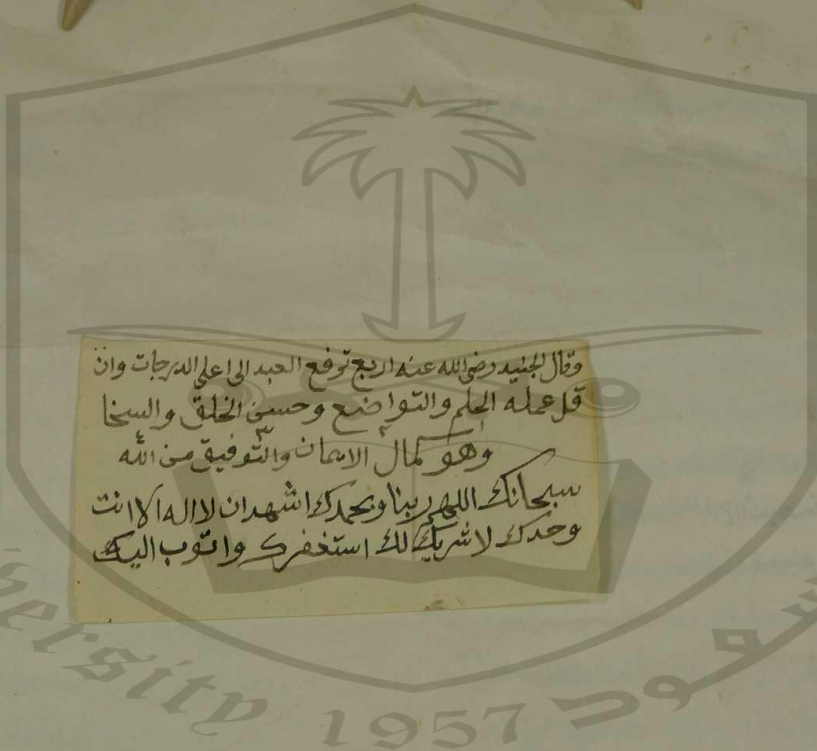 وقال الجنيد رضي الله عنه اربع ترفع العبد الى اعلى الدرجات وان
قل عمله الحلم والتواضع وحسن الخلق والسخا
وهو كمال الايمان والتوفيق من الله
سبحانك اللهم ربنا وبحمدك اشهد ان لا اله الا انت
وحدك لا شريك لك استغفرك واتوب اليك
versity 1957 سعود